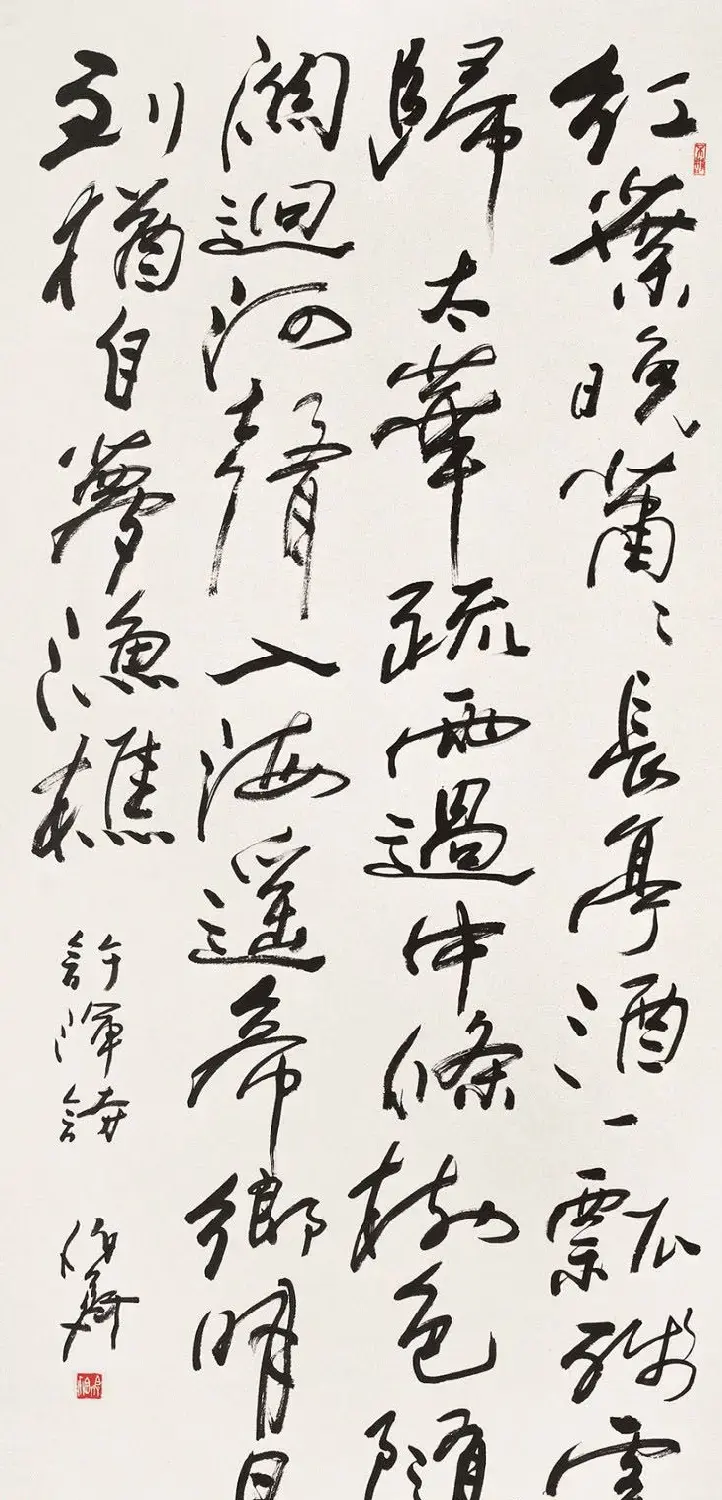 紅葉晚蕭〻長亭酒一瓢殘雲
歸太華疏雨過中條樹色隨
關迴河聲入海遥帝鄉明日
到猶自夢漁樵
許渾詩